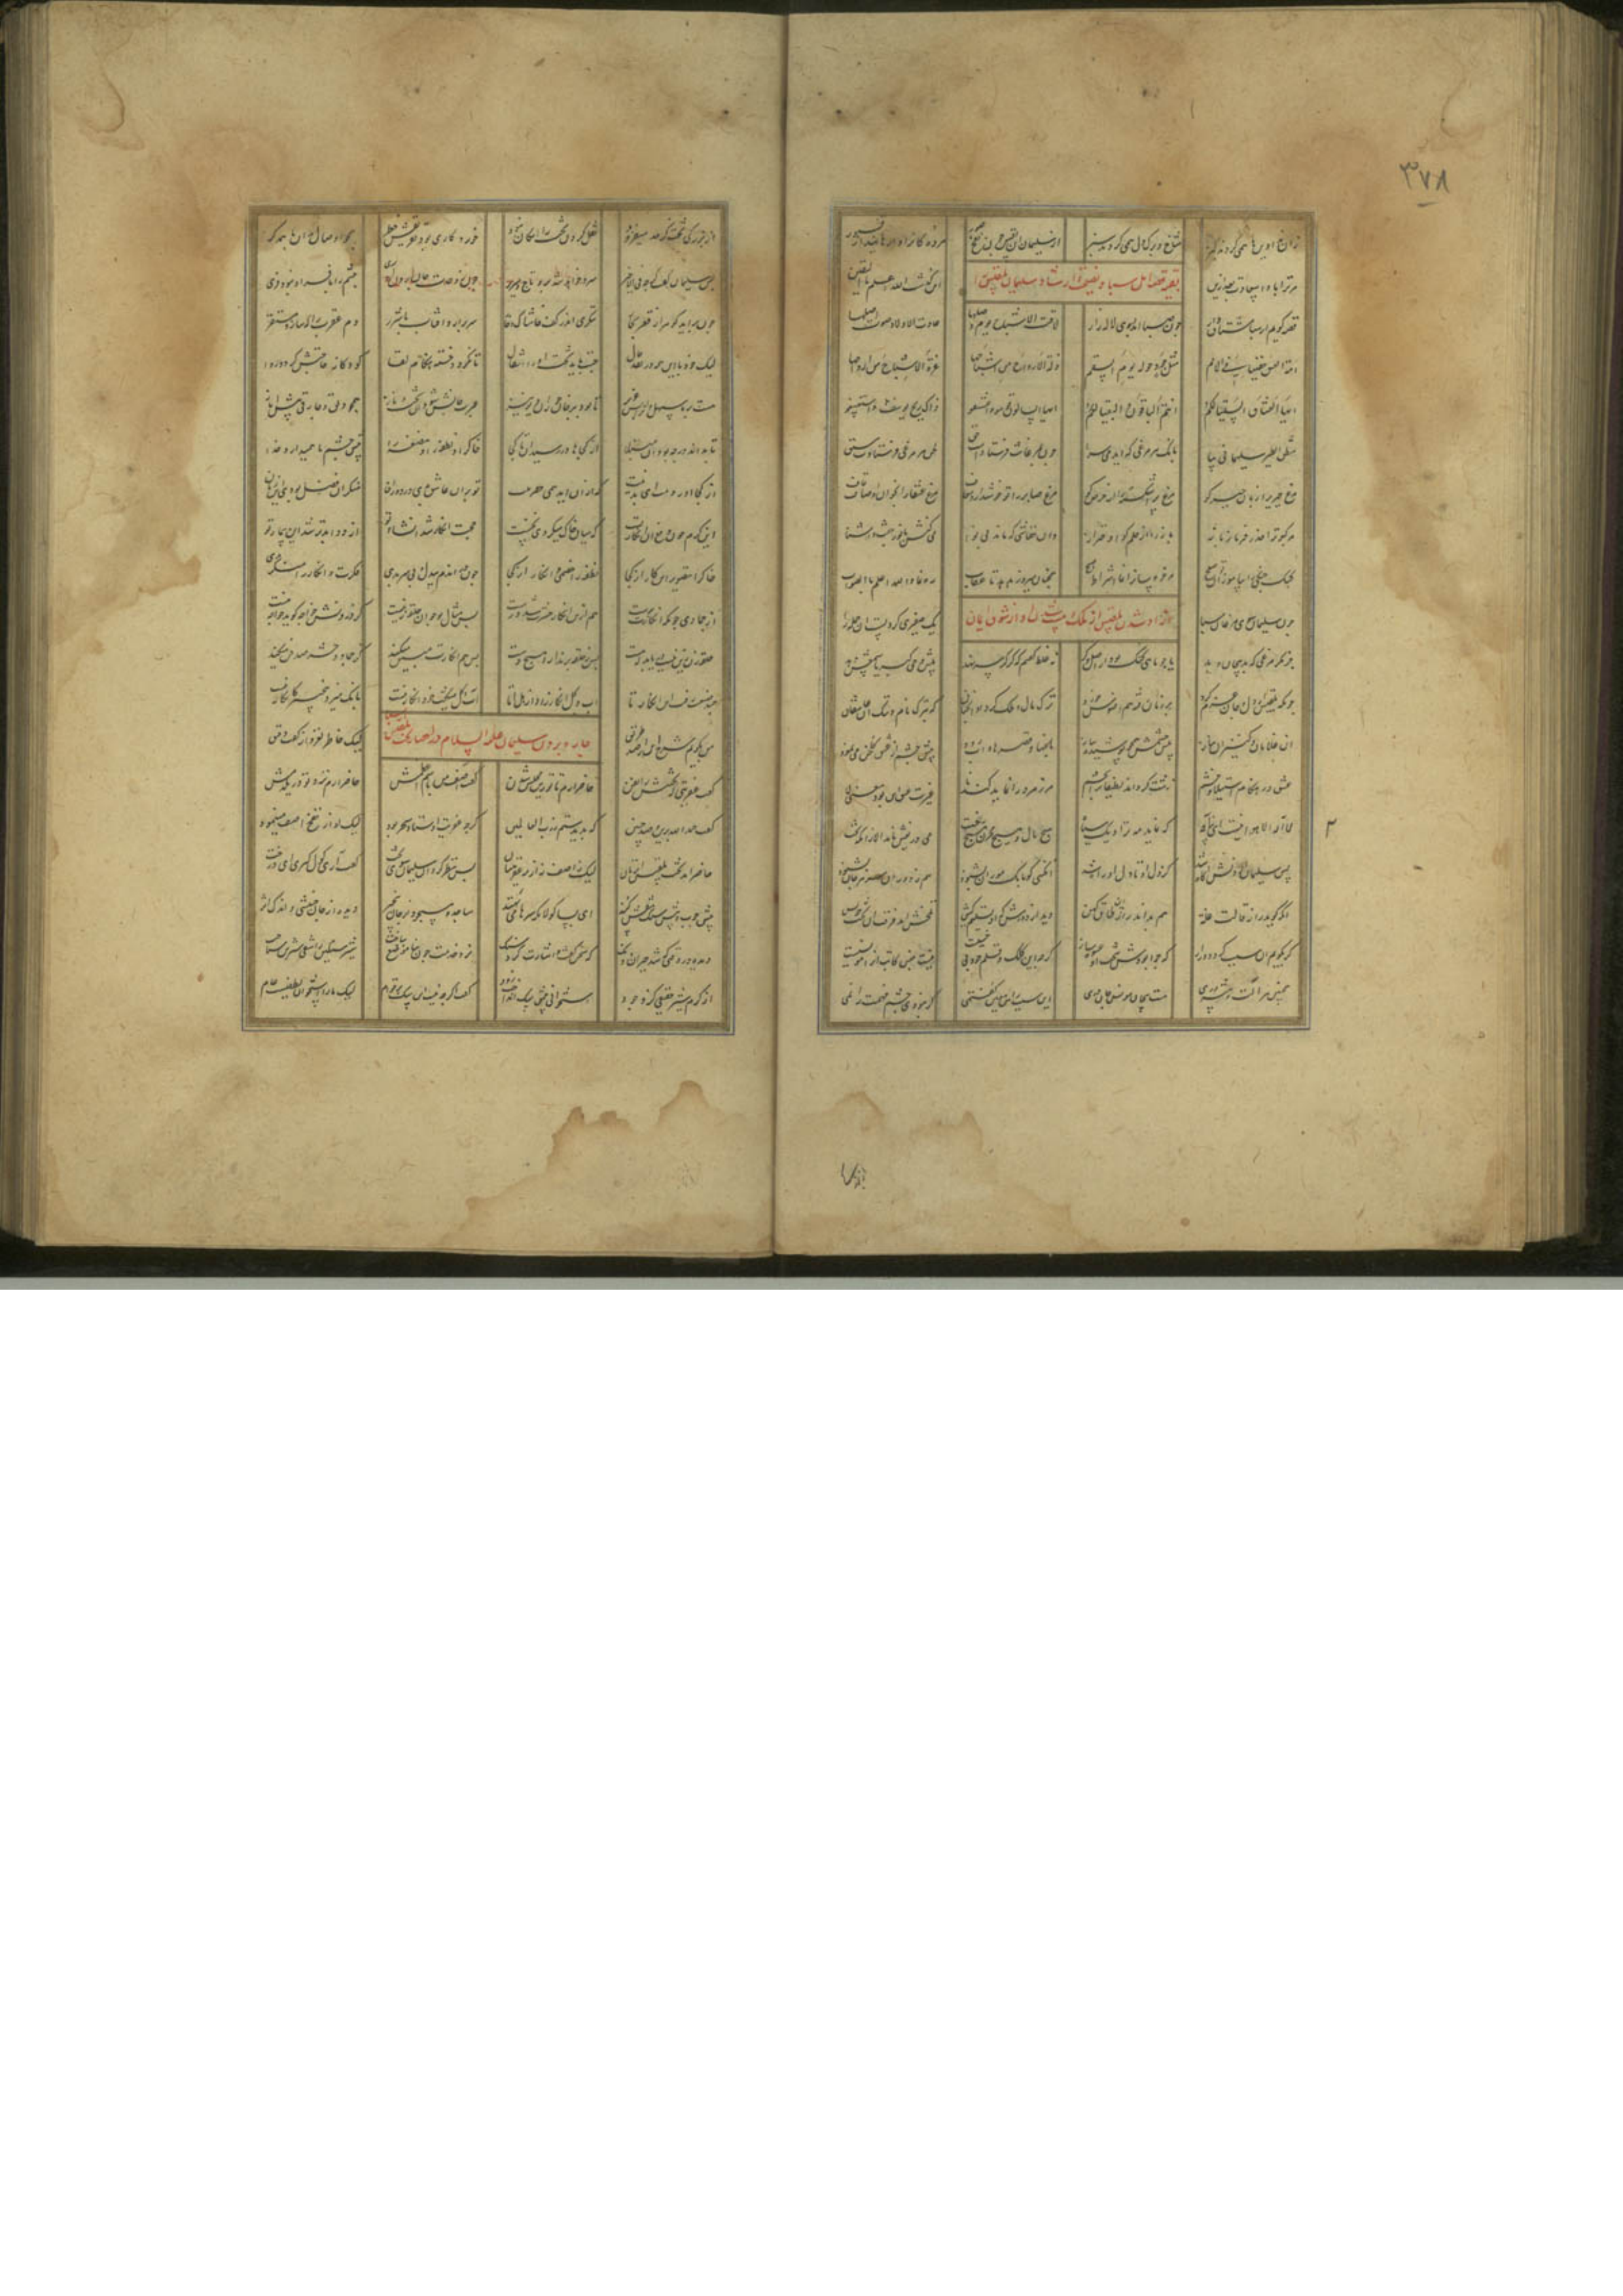 ۳۷۸
بقیه قصه اهل سبا و نصیحت و ارشاد سلیمان بلقیس را
قصه گویم از سبا مشتاق وار چون صبا آمد بسوی لاله زار لاقت الاشباح یوم وصلها عادت الاولاد صوب اصلها
ذلة الارواح من اشباحها عزة الاشباح من ارواحها
ایها العشاق السقیا لکم انتم الباقون والبقیا لکم ذاک ریح یوسف فاستنشقوا
منطق الطیر سلیمانی بیا بانک هر مرغی که آید می سرا چون بمرغانت فرستادست حق لحن هر مرغی
مرغ جبری را زبان جبر کو مرغ پر اشکسته را از صبر کو مرغ صابر را تو خوش دار و معاف مرغ عنقا را بخوان اوصاف قاف
مر کبوتر را حذر فرما ز باز باز را از حلم کو و احتراز می کنش با نور جفت و آشنا
کبک جنکی را بیاموزان تو صلح همچنان میرو ز هدهد تا عقاب ره نما والله اعلم بالصواب
آزاد شدن بلقیس از ملک
چون سلیمان سوی مرغان سبا یک صفیری کرد بست آن جمله را
جز مکر مرغی که بد بیجان و پر یا چو ماهی کنک بود از اصل کر نه غلط کفتم که کر کر سر نهد پیش وحی کبریا سمعش دهد
چونکه بلقیس از دل و جان عزم کرد بر زمان رفته هم افسوس خورد ترک مال و ملک کرد او آنچنان که بترک نام و ننک آن عاشقان
آن غلامان و کنیزان بناز پیش چشمش همچو پوسیده پیاز باغها و قصرها و آب رود پیش چشم از عشق کلخن می نمود
عشق در هنکام استیلا و خشم زشت کرداند لطیفان را بچشم هر زمرد را نماید کندنا غیرت عشق این بود معنی لا
لا اله الا هو اینست ای پناه که نماید مه ترا دیک سیاه هیچ مال و هیچ مخزن هیچ رخت می دریغش نامد الا جز که تخت
پس سلیمان از دلش آکاه شد کز دل او تا دل او راه شد آنکسی کو بانک موران بشنود هم
آنکه کوید راز قالت نملة هم بداند راز این طاق کهن دید از دورش که آن تسلیم کیش تلخش آمد فرقت آن تخت خویش
کر بکویم آن سبب کردد دراز که چرا بودش بتخت آن عشق و ساز کرچه این کلک و قلم خود بی حسیست نیست جنس کاتب او را مونسیست
همچنین هر آلت پیشه وری هست بیجان مونس جانوری این سبب را من معین کفتمی کر نبودی چشم فهمت را نمی
از بزرکی تخت کز حد میفزود نقل کردن تخت را امکان نبود خرده کاری بود و تفریقش خطر همچو اوصال بدن با همدکر
پس سلیمان کفت کرچه فی الاخیر سرد خواهد شد برو تاج و سریر چون ز وحدت جان برون آرد سری جسم را با فر او نبود فری
چون برآید کوهر از قعر بحار بنکری اندر کف و خاشاک سر برآرد آفتاب با شرر دم عقرب را که سازد مستقر
لیک خود با این همه بر نقد حال جست باید تخت او را انتقال تا نکردد خسته هنکام لقا کودکانه حاجتش کردد روا
هست بر ما سهل و او را بس عزیز تا بود بر خوان حوران دیو نیز عبرت جانش شود آن تخت ناز همچو دلق و چارقی پیش ایاز
تا بداند در چه بود آن مبتلا از کجاها در رسید او تا کجا خاک را و نطفه را و مضغه را پیش چشم ما همی دارد خدا
از کجا آوردمت ای بد نیت که از آن آید همی خفریقیت تو بر آن عاشق بدی در دور آن منکر این فضل بودی آن زمان
این کرم چون دفع آن انکار تست که میان خاک میکردی نخست حجت انکار شد انشار تو از دوا بدتر شد این بیمار تو
خاک را تصویر این کار از کجا نطفه را خصمی و انکار از کجا چون در آن دم بیدل و بی سر بدی فکرت و انکار را منکر بدی
از جمادی چونکه انکارت برست هم ازین انکار حشرت شد درست پس مثال تو چو آن حلقه زنیست کز درونش خواجه کوید خواجه نیست
حلقه زن زین نیست دریابد که هست پس ز حلقه برندارد هیچ دست پس هم انکارت مبین میکند کز جماد او حشر صد فن میکند
چند صنعت رفت ای انکار تا آب و کل انکار زاد از هل اتی آب و کل میکفت خود انکار نیست بانک میزد بیخبر کاخبار نیست
من بکویم شرح این از صد طریق لیک خاطر لغزد از کفت دقیق
چاره کردن سلیمان علیه السلام در احضار تخت بلقیس
کفت عفریتی که تختش را بفن حاضر آرم تا تو زین مجلس شدن کفت آصف من باسم اعظمش حاضر آرم پیش تو در یک دمش
کفت حمد الله برین و صد چنین که بدیدستم ز رب العالمین کرچه عفریت اوستاد سحر بود لیک آن از نفخ آصف
حاضر آمد تخت بلقیس آن زمان لیک ز آصف نه از فن عفریتیان پس نظر کرد آن سلیمان سوی تخت کفت آری کول کیری ای درخت
پیش چوب و پیش سنک نقش کند ای بسا کولان که سرها می نهند ساجد و مسجود از جان بیخبر دیده از جان جنبشی و اندک اثر
دیده در وقتی که شد حیران و دنک که سخن کفت و اشارت کرد سنک نرد خدمت چون بنا موضع بباخت شیر سنکین را شقی شیری شناخت
از کرم شیر حقیقی کرد جود استخوانی پیش سک انداخت زود کفت کرچه نیست آن سک بر قوام لیک ما را استخوان لطفیست عام